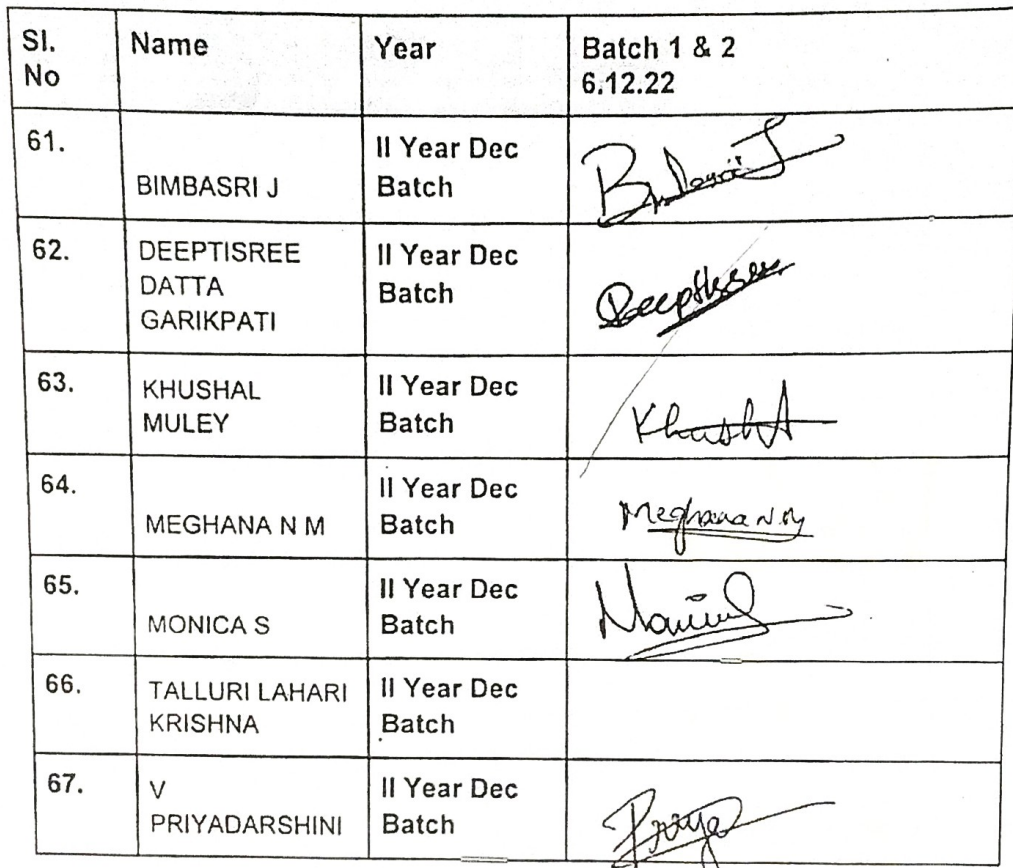 Sl. No Name Year Batch 1 & 2
6.12.22
61. BIMBASRI J II Year Dec Batch Bimbasri J
62. DEEPTISREE DATTA GARIKPATI II Year Dec Batch
63. KHUSHAL MULEY II Year Dec Batch
64. MEGHANA N M II Year Dec Batch Meghana N.M
65. MONICA S II Year Dec Batch
66. TALLURI LAHARI KRISHNA II Year Dec Batch
67. V PRIYADARSHINI II Year Dec Batch Priya